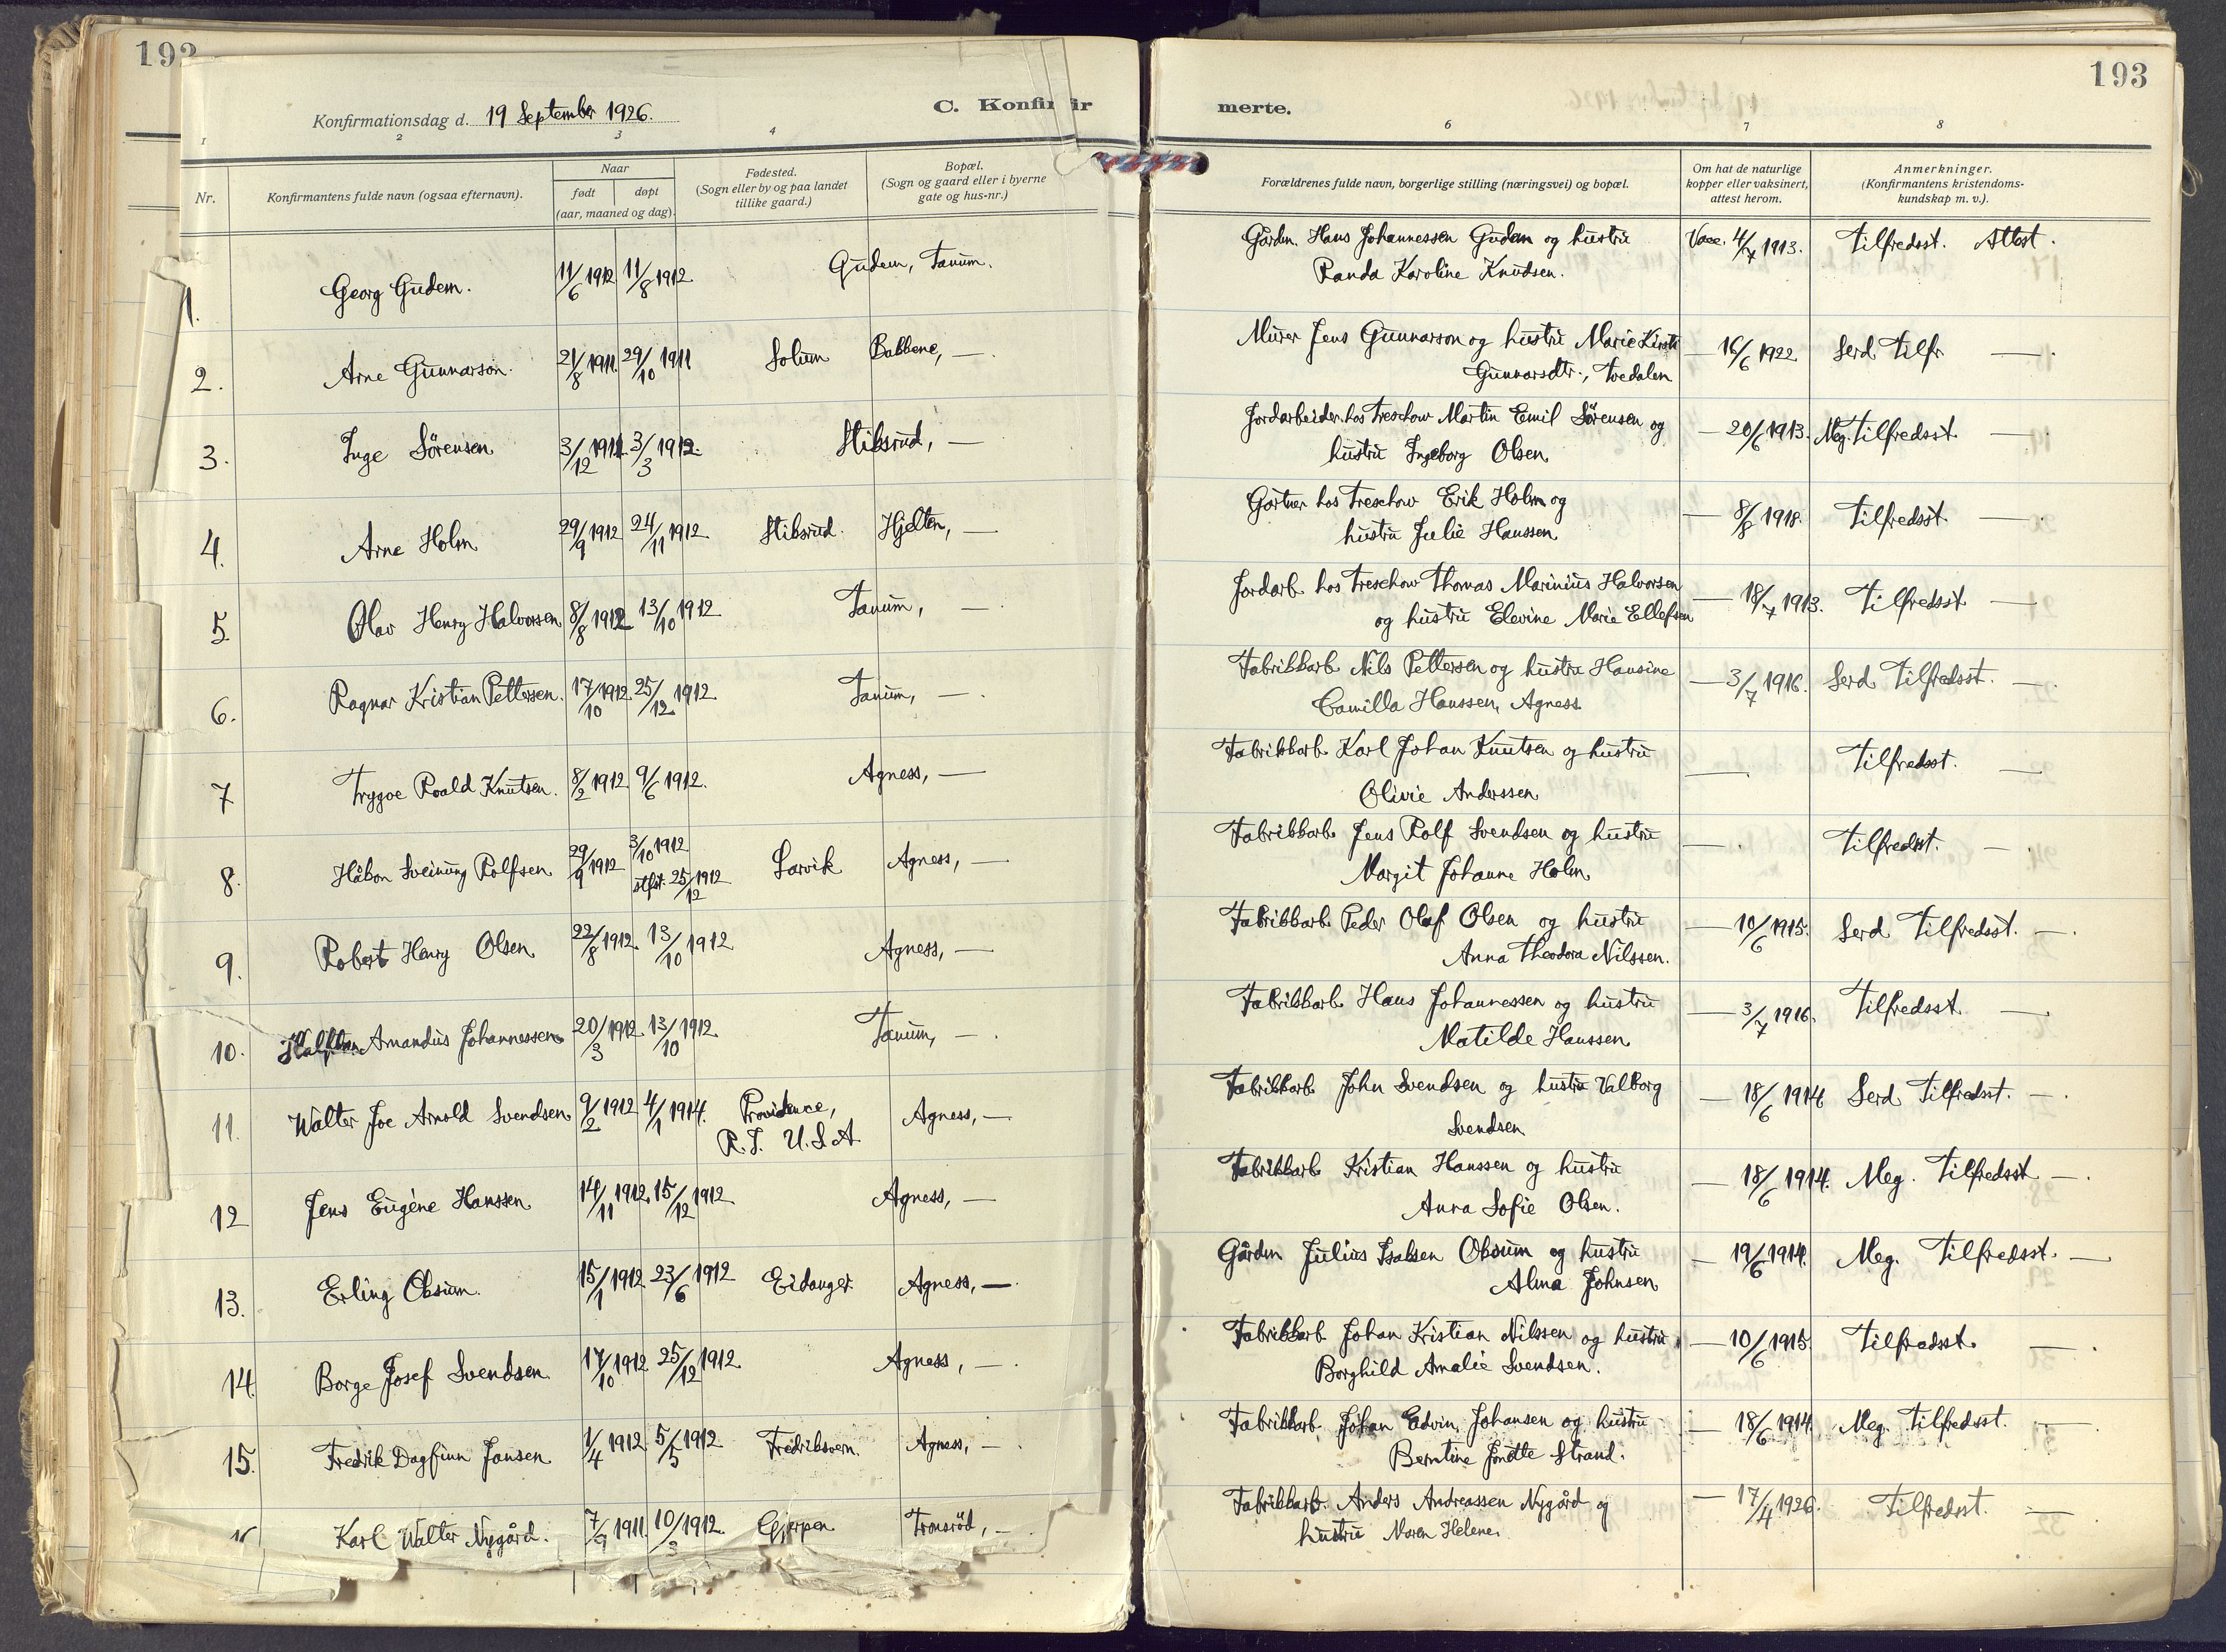 192
193
Konfirmationsdag d. 19 September 1926.
C. Konfirmerte.
1 2 3 4 6 7 8
Nr.
Konfirmantens fulde navn (ogsaa efternavn).
Naar
født døpt
(aar, maaned og dag).
Fødested.
(Sogn eller by og paa landet
tillike gaard.)
Bopæl.
(Sogn og gaard eller i byerne
gate og hus-nr.)
Forældrenes fulde navn, borgerlige stilling (næringsvei) og bopæl.
Om hat de naturlige
kopper eller vaksinert,
attest herom.
Anmerkninger.
(Konfirmantens kristendoms-
kundskap m. v.).
1. Georg Gudem. 11/6 1912 11/8 1912 Gudem, Tanum. Gårdm. Hans Johannessen Gudem og hustru Vacc. 4/7 1913. Tilfredsst. Attest.
Randa Karoline Knudsen.
2. Arne Gunnarson. 21/8 1911. 29/10 1911 Solum Bakkene, — . Murer Jens Gunnarson og hustru Marie Kirsti — 16/6 1922 Serd. Tilfr. — .
Gunnarsdtr., Tvedalen
3. Inge Sörensen 3/12 1911. 3/3 1912. Stibsrud, — Jordarbeider hos Treschow Martin Emil Sörensen og — 20/6 1913. Meg. Tilfredsst. — .
hustru Ingeborg Olsen
4. Arne Holm 29/9 1912 24/11 1912. Stibsrud. Hjelten, — Gartner hos Treschow Erik Holm og — 8/8 1918. Tilfredsst. — .
hustru Julie Hanssen
5. Olav Henry Halvorsen 8/8 1912 13/10 1912 Tanum, — Jordarb. hos Treschow Thomas Marinius Halvorsen — 18/7 1913. Tilfredsst. —
og hustru Elevine Marie Ellefsen
6. Ragnar Kristian Pettersen. 17/10 1912. 25/12 1912. Tanum, — . Fabrikkarb. Nils Pettersen og hustru Hansine — 3/7 1916. Serd Tilfredsst. — .
Camilla Hanssen, Agness
7 Trygve Roald Knutsen. 8/2 1912 9/6 1912. Agness, — Fabrikkarb. Karl Johan Knutsen og hustru — Tilfredsst. —
Olivie Anderssen
8. Håkon Sveinung Rolfsen 29/9 1912 3/10 1912 stfst. 25/12 1912 Larvik Agness, — Fabrikkarb. Jens Rolf Svendsen og hustru — . Tilfredsst. — .
Margit Johanne Holm
9. Robert Henry Olsen 22/8 1912. 13/10 1912 Agness, — Fabrikkarb. Peder Olaf Olsen og hustru — 10/6 1915. Serd Tilfredsst. — .
Anna Theodora Nilssen.
10. Halfdan Amandus Johannessen 20/3 1912. 13/10 1912. Tanum, — . Fabrikkarb. Hans Johannessen og hustru — 3/7 1916. Tilfredsst. — .
Matilde Hanssen
11. Walter Joe Arnold Svendsen 9/2 1912 4/1 1914. Providence, R. I. U. S. A. Agness, — Fabrikkarb. John Svendsen og hustru Valborg — 18/6 1914 Serd Tilfredsst. — .
Svendsen
12 Jens Eugéne Hanssen 14/11 1912. 15/12 1912 Agness, — Fabrikkarb. Kristian Hanssen og hustru — 18/6 1914. Meg. Tilfredsst — .
Anna Sofie Olsen.
13. Erling Oksum. 15/1 1912 23/6 1912 Eidanger Agness, — . Gårdm Julius Isaksen Oksum og hustru — 19/6 1914. Meg. Tilfredsst. —
Alma Johnsen
14. Borge Josef Svendsen 17/10 1912 25/12 1912 Agness, — . Fabrikkarb. Johan Kristian Nilssen og hustru — 10/6 1915. Tilfredsst. — .
Borghild Amalie Svendsen.
15. Fredrik Dagfinn Jansen 1/4 1912 5/5 1912 Fredriksvern. Agness, — . Fabrikkarb. Johan Edvin Johansen og hustru — 18/6 1914 Meg. Tilfredsst. —
Berntine Strand.
Karl Walter Nygård. 1911. 10/3 1912. Gjerpen Tronsröd, — . Fabrikkarb. Anders Andreassen Nygård og — 17/4 1926. Tilfredsst. —
hustru Maren Helene.